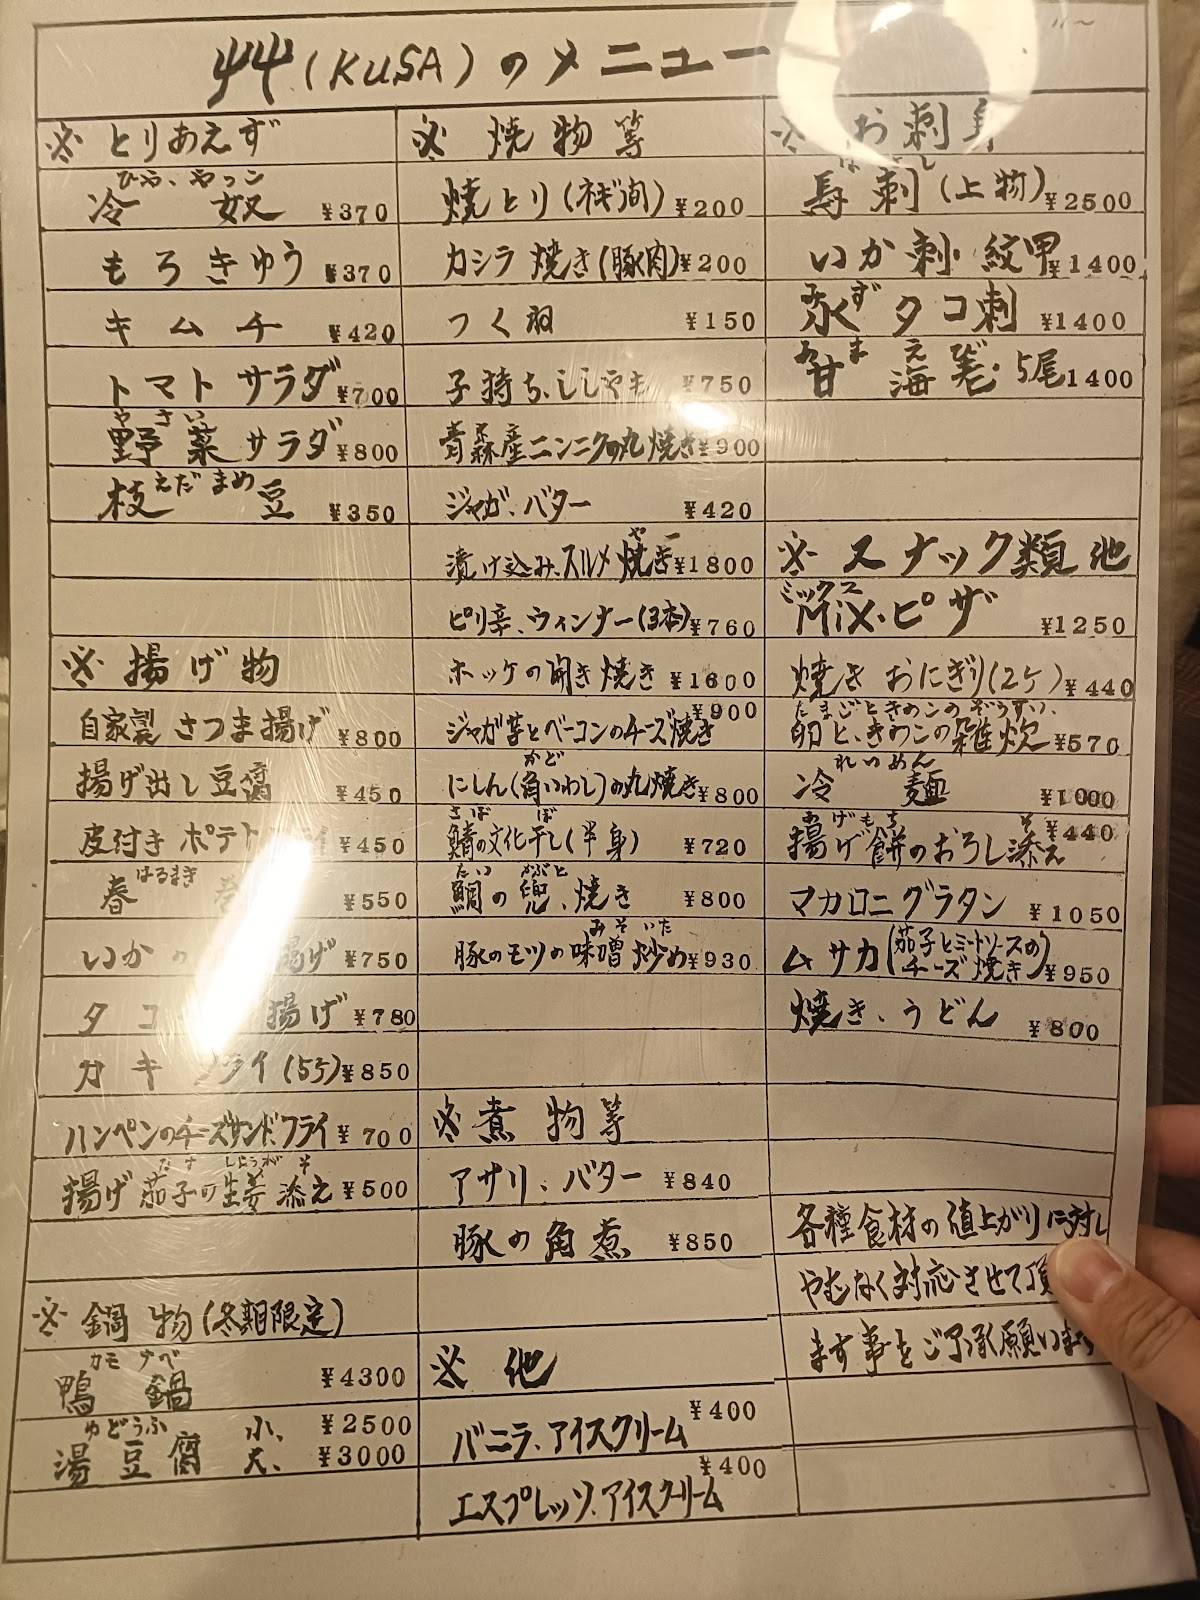 艸(KUSA)のメニュー
※とりあえず
ひや、やっこ
冷奴 ¥370
もろきゅう ¥370
キムチ ¥420
トマトサラダ ¥700
やさい
野菜サラダ ¥800
えだまめ
枝豆 ¥350
※揚げ物
自家製さつま揚げ ¥800
揚げ出し豆腐 ¥450
皮付きポテト ¥450
はるまき
春 ¥550
いかの 揚げ ¥750
タコ 揚げ ¥780
カキフライ(5ケ) ¥850
ハンペンのチーズサンド、フライ ¥700
なす しょうが そ
揚げ茄子の生姜添え ¥500
※鍋物(冬期限定)
カモナベ
鴨鍋 ¥4300
ゆどうふ
湯豆腐 小、¥2500
大、¥3000
※焼物等
焼とり(ネギ間) ¥200
カシラ焼き(豚肉) ¥200
つく羽 ¥150
子持ち、ししゃも ¥750
青森産ニンニクの丸焼き ¥900
ジャガ、バター ¥420
や
漬け込み、スルメ焼き ¥1800
ピリ辛、ウィンナー(3本) ¥760
ホッケの開き焼き ¥1600
¥900
ジャガ芋とベーコンのチーズ焼き
かど
にしん(角いわし)の丸焼き ¥800
さば ぼ
鯖の文化干し(半身) ¥720
たい かぶと
鯛の兜、焼き ¥800
みそいた
豚のモツの味噌炒め ¥930
※煮物等
アサリ、バター ¥840
豚の角煮 ¥850
※他
¥400
バニラ、アイスクリーム
¥400
エスプレッソ、アイスクリーム
※お刺身
ばさし
馬刺(上物) ¥2500
いか刺・紋甲 ¥1400
みず
水タコ刺 ¥1400
あまえび
甘海老・5尾 1400
※スナック類他
ミックス
MiX・ピザ ¥1250
焼きおにぎり(2ケ) ¥440
たまごときのこのぞうすい、
卵と、きのこの雑炊 ¥570
れいめん
冷麺 ¥1000
あげもち そ ¥440
揚げ餅のおろし添え
マカロニグラタン ¥1050
ムサカ(茄子とミートソースのチーズ焼き) ¥950
焼き、うどん ¥800
各種食材の値上がりに対し
やむなく対応させて頂
ます事をご了承願います